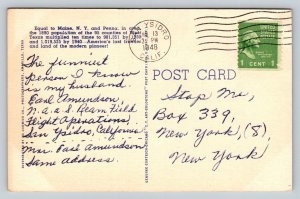 Equal to Maine, N. Y. and Penna. in area,
the 1890 population of the 92 counties of
multiplied ten times to 901,351 by 1930
and 1,019,523 by 1940. America's last frontier,
and land of the modern pioneer!
The funniest
person I know
is my husband.
Earl Amundson,
N. A. A. S. Ream Field
Flight Operations,
San Ysidro, California
Mrs. Earl Amundson
Same address.
YSIDRO
13
PM
1948
CALIF.
1 CENT 1
POST CARD
Stop Me,
Box 339,
New York, (8),
New York